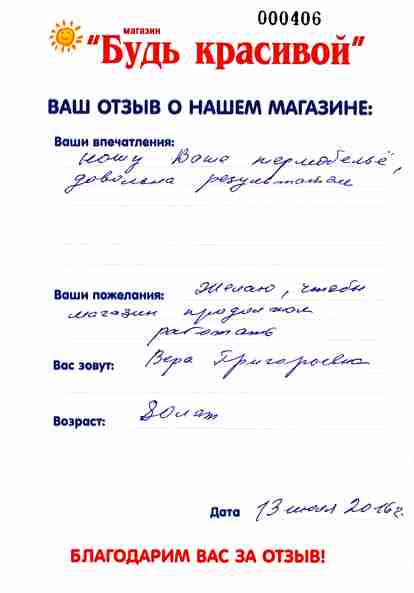 000406
магазин
"Будь красивой"
ВАШ ОТЗЫВ О НАШЕМ МАГАЗИНЕ:
Ваши впечатления:
ношу Ваше термобельё,
довольна результатом
Ваши пожелания: Желаю, чтобы
магазин продолжал
работать
Вас зовут: Вера Григорьевна
Возраст: 80 лет
Дата 13 июля 2016 г.
БЛАГОДАРИМ ВАС ЗА ОТЗЫВ!